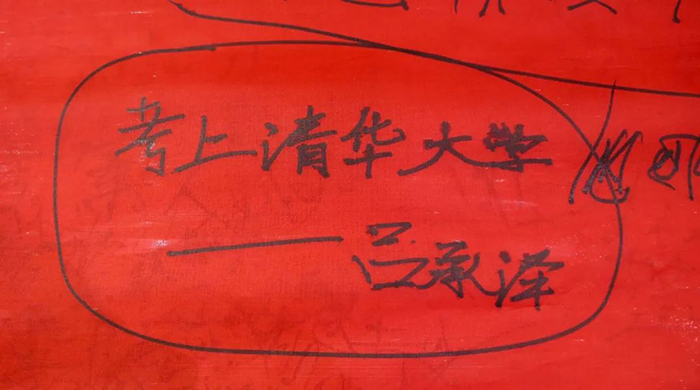 考上清华大学
——吕承泽